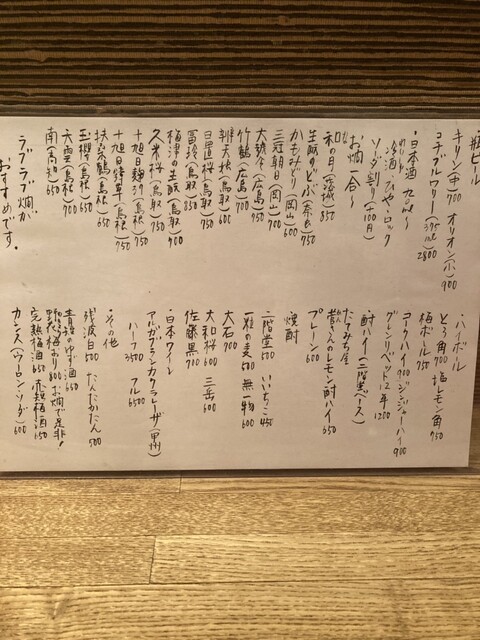 瓶ビール
キリン(中)700 オリオン(小)900
コチブルワリー(375ml)2800
・日本酒 90ml〜
冷酒 ひや・ロック
ソーダ割り(+100円)
お燗 一合〜
和の月(茨城)850
生酛のどぶ(奈良)750
かもみどり(岡山)600
三冠朝日(岡山)700
大號令(広島)750
竹鶴(広島)700
辨天娘(鳥取)600
日置桜(鳥取)750
冨玲(鳥取)850
梅津の生酛(鳥取)900
久米桜(鳥取)750
十旭日麹99(島根)750
十旭日(島根)750
扶桑鶴(島根)650
玉櫻(島根)650
六雲(島根)700
南(高知)650
ラブラブ燗が
おすすめです。
・ハイボール
とり角700 塩レモン角750
梅ボール750
コークハイ900 ジンジャーハイ900
グレンリベット12年1200
酎ハイ(二階堂ベース)
たてみち屋
菅さんのレモン酎ハイ650
プレーン600
焼酎
二階堂500 いいちこ450
一粒の麦500 無一物600
大石700
大和桜600 三岳600
佐藤黒700
・日本ワイン
アルガブランカクラレーザ(甲州)
ハーフ3500 フル6500
・その他
残波白500 たんたかたん500
青短のゆず酒650
野花梅おり800 お燗で是非!
完熟梅酒650 赤短梅酒650
カシス(ウーロン・ソーダ)600